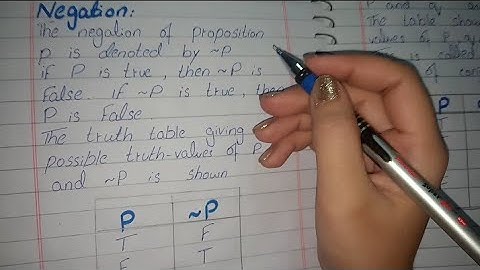 Negation:
The negation of Proposition
P is denoted by ~P
if P is true, then ~P is
False. if ~P is true, then
P is False.
The truth table giving
possible truth-values of P
and ~P is shown
P ~P
T F
F T
P and
The table show
values of P
is called
of con
P